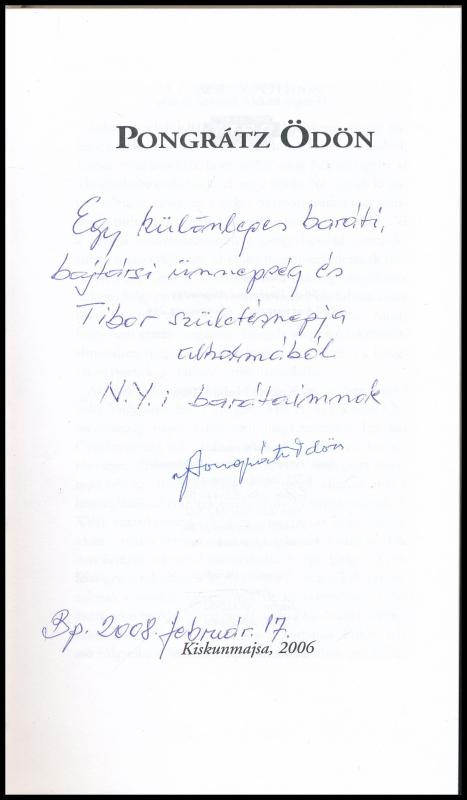 PONGRÁTZ ÖDÖN
Egy különleges baráti,
bajtársi ünnepség és
Tibor születésnapja
alkalmából
N.Y.i barátaimnak
Pongrátz Ödön
Bp. 2008. február. 17.
Kiskunmajsa, 2006